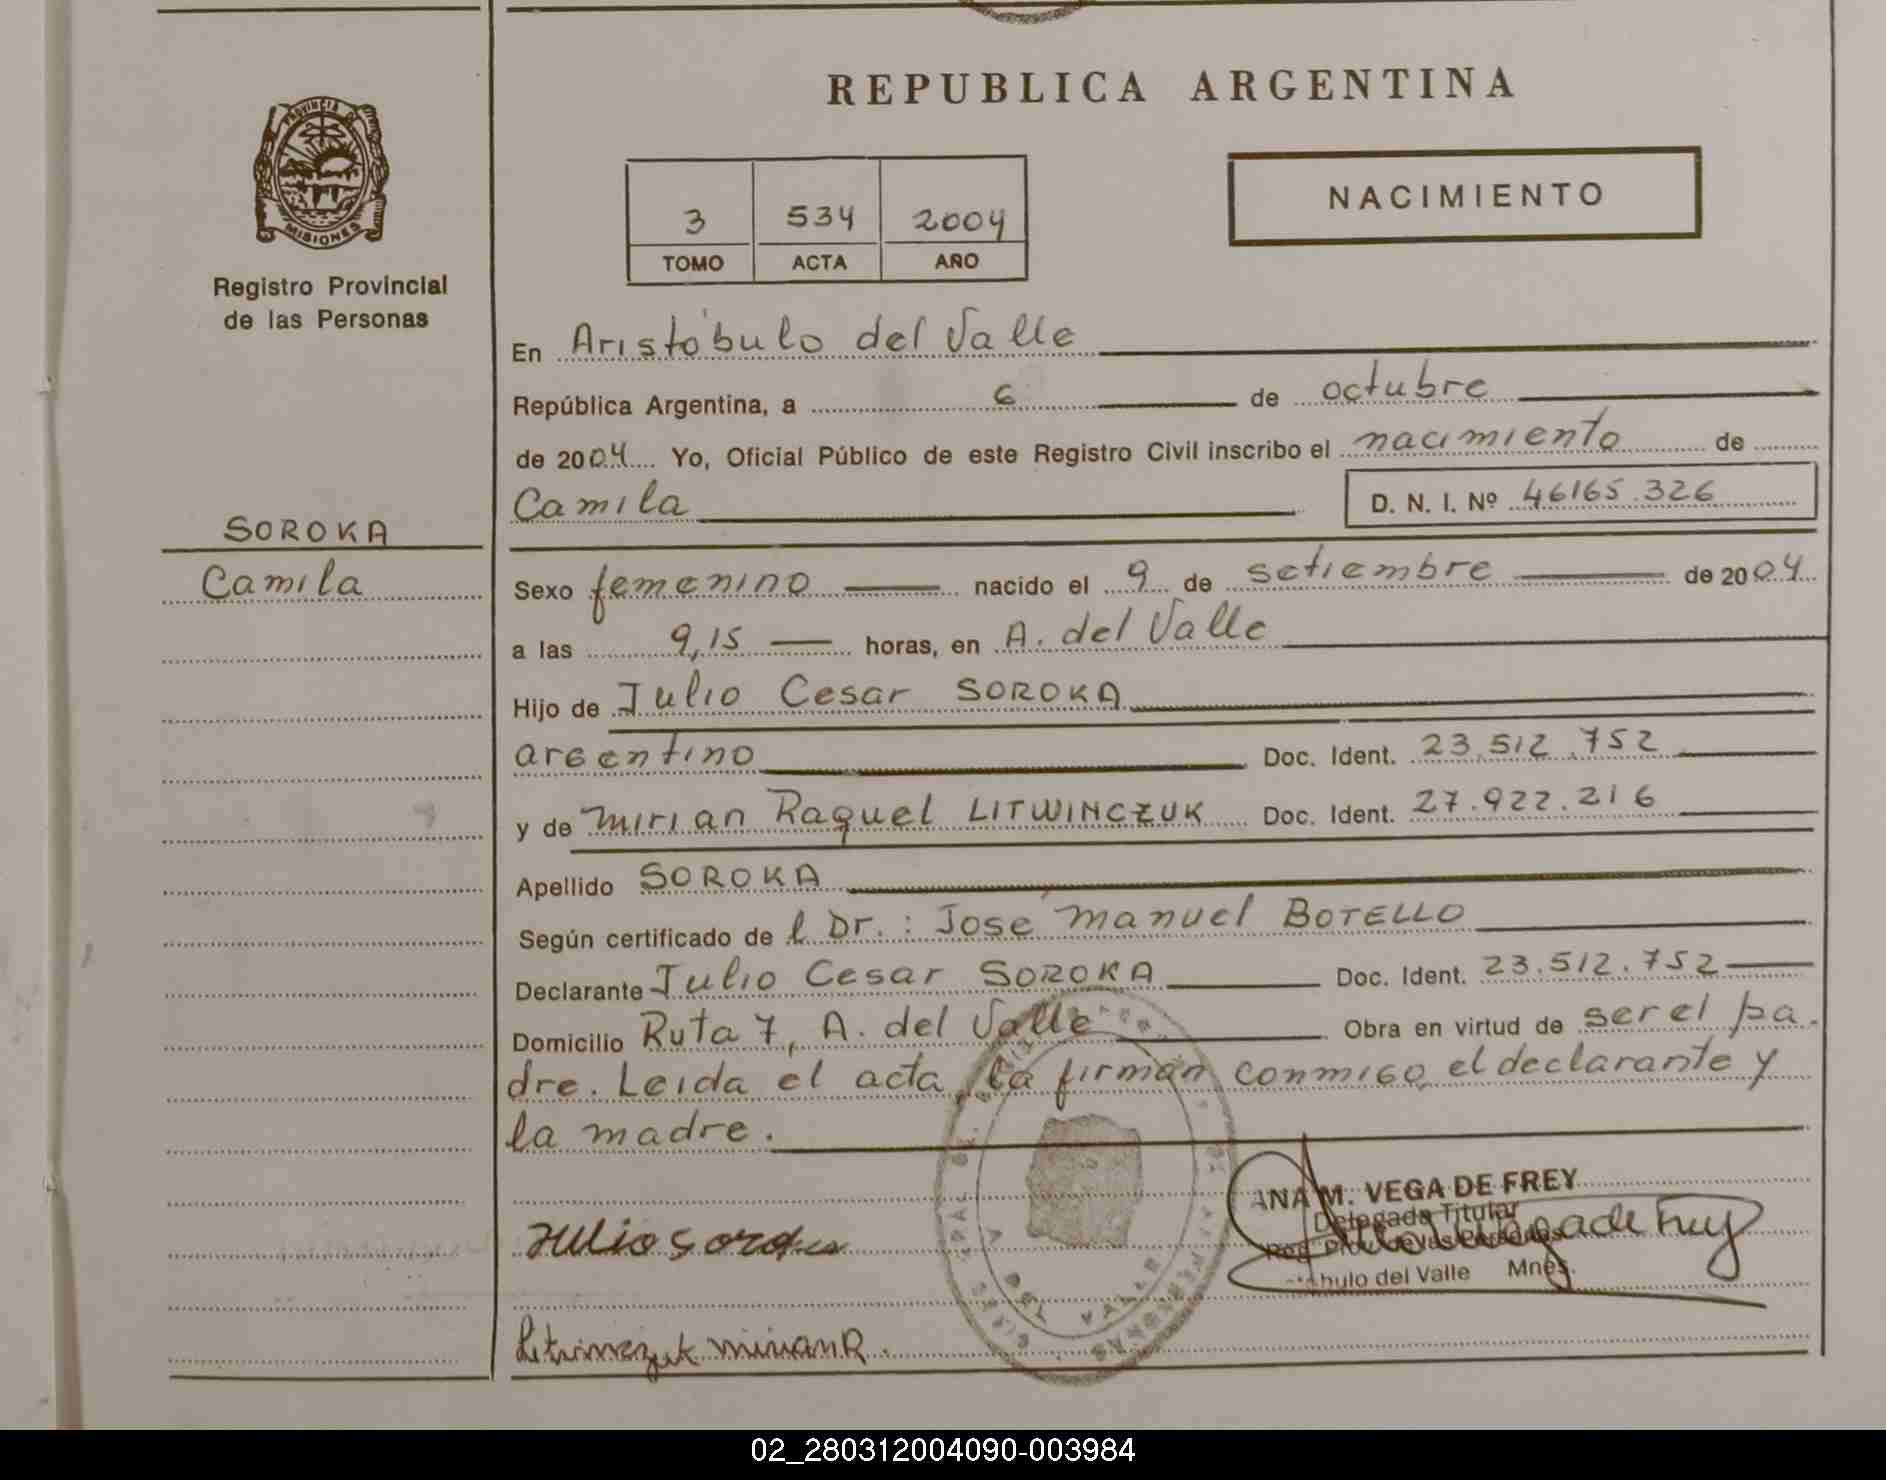 REPUBLICA ARGENTINA
PROVINCIA DE
MISIONES
Registro Provincial
de las Personas
3 534 2004
TOMO ACTA AÑO
NACIMIENTO
En Aristóbulo del Valle
República Argentina, a 6 de octubre
de 2004 Yo, Oficial Público de este Registro Civil inscribo el nacimiento de
Camila D. N. I. Nº 46165.326
SOROKA
Camila
Sexo femenino nacido el 9 de setiembre de 2004
a las 9,15 horas, en A. del Valle
Hijo de Julio Cesar SOROKA
argentino Doc. Ident. 23.512.752
y de Mirian Raquel LITWINCZUK Doc. Ident. 27.922.216
Apellido SOROKA
Según certificado de l Dr.: José Manuel BOTELLO
Declarante Julio Cesar SOROKA Doc. Ident. 23.512.752
Domicilio Ruta 7, A. del Valle Obra en virtud de ser el pa
dre. Leida el acta, la firman conmigo, el declarante y
la madre.
ANA M. VEGA DE FREY
Delegada Titular
bulo del Valle Mnes.
Julio Soroka
Litwinczuk Mirian R.
A DEL VALLE
02_280312004090-003984